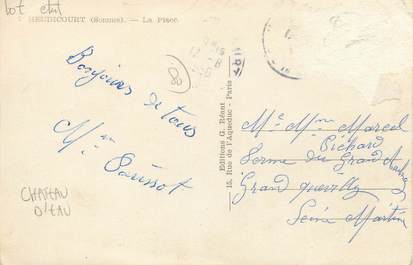 lot etat
HEUDICOURT (Somme). — La Place.
80
Bonjours de tous
Mme
CHATEAU
D'EAU
Editions G. Réant
15, Rue de l'Aqueduc - Paris
Mr Mme Marcel
Pichard
Ferme du Grand
Grand quevilly
Seine Maritime